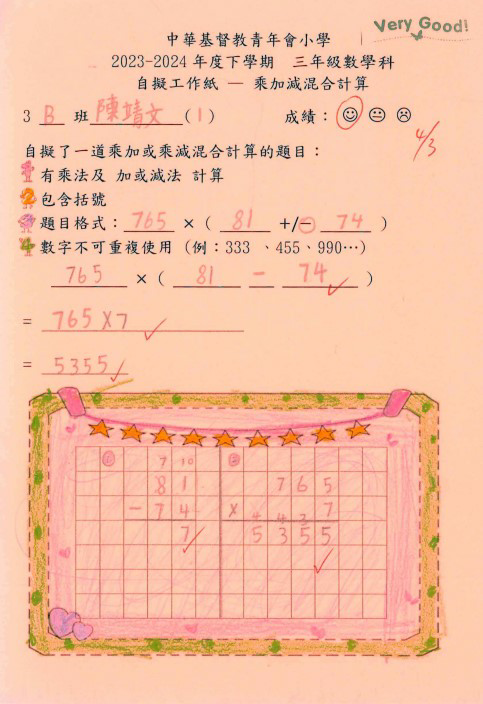 Very Good!
中華基督教青年會小學
2023-2024 年度下學期 三年級數學科
自擬工作紙 — 乘加減混合計算
3 B 班 陳靖文 (1) 成績：
4/3
自擬了一道乘加或乘減混合計算的題目：
1 有乘法及 加或減法 計算
2 包含括號
3 題目格式：765 ×( 81 +/− 74 )
4 數字不可重複使用 (例：333 、455、990…)
765 ×( 81 − 74 )
= 765 X 7
= 5355
① 7 10 ②
81 765
−74 × 7
4 4 3
7 5355